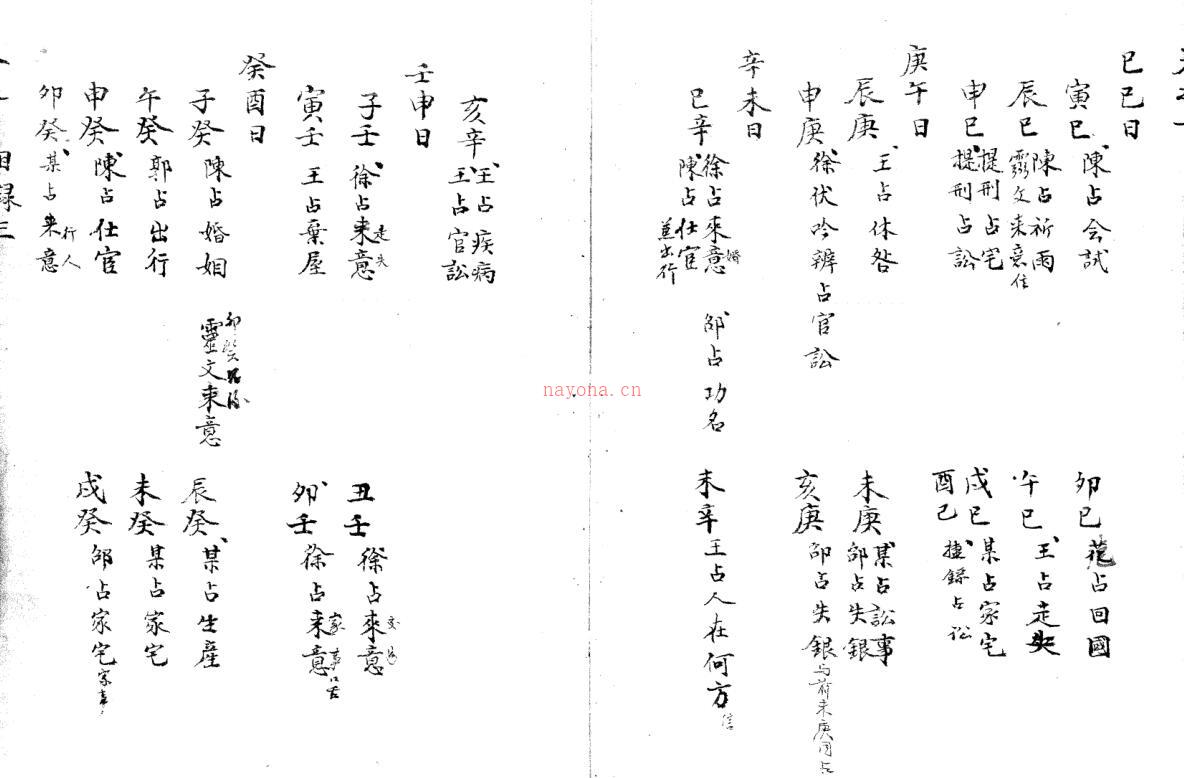 己巳日
寅巳 陳占会試
卯巳 范占回國
辰巳 陳占祈雨
靈文来意 信
午巳 王占走失
申巳 提刑占宅
提刑占訟
戌巳 某占家宅
酉己 捷録占訟
庚午日
辰庚 王占休咎
未庚 某占訟事
邵占失銀
申庚 徐伏吟辨占官訟
亥庚 邵占失銀 与前未庚同占
辛未日
巳辛 徐占來意 婚
陳占仕宦 並出行
邵占功名
未辛 王占人在何方 信
亥辛 王占疾病
王占官訟
壬申日
子壬 徐占来意 走失
丑壬 徐占來意
寅壬 王占葉屋
卯壬 徐占来意 家事口舌
癸酉日
子癸 陳占婚姻
靈文来意
辰癸 某占生產
午癸 郭占出行
未癸 某占家宅
申癸 陳占仕宦
戌癸 邵占家宅
卯癸 某占来意 行人
目録三
nayona.cn